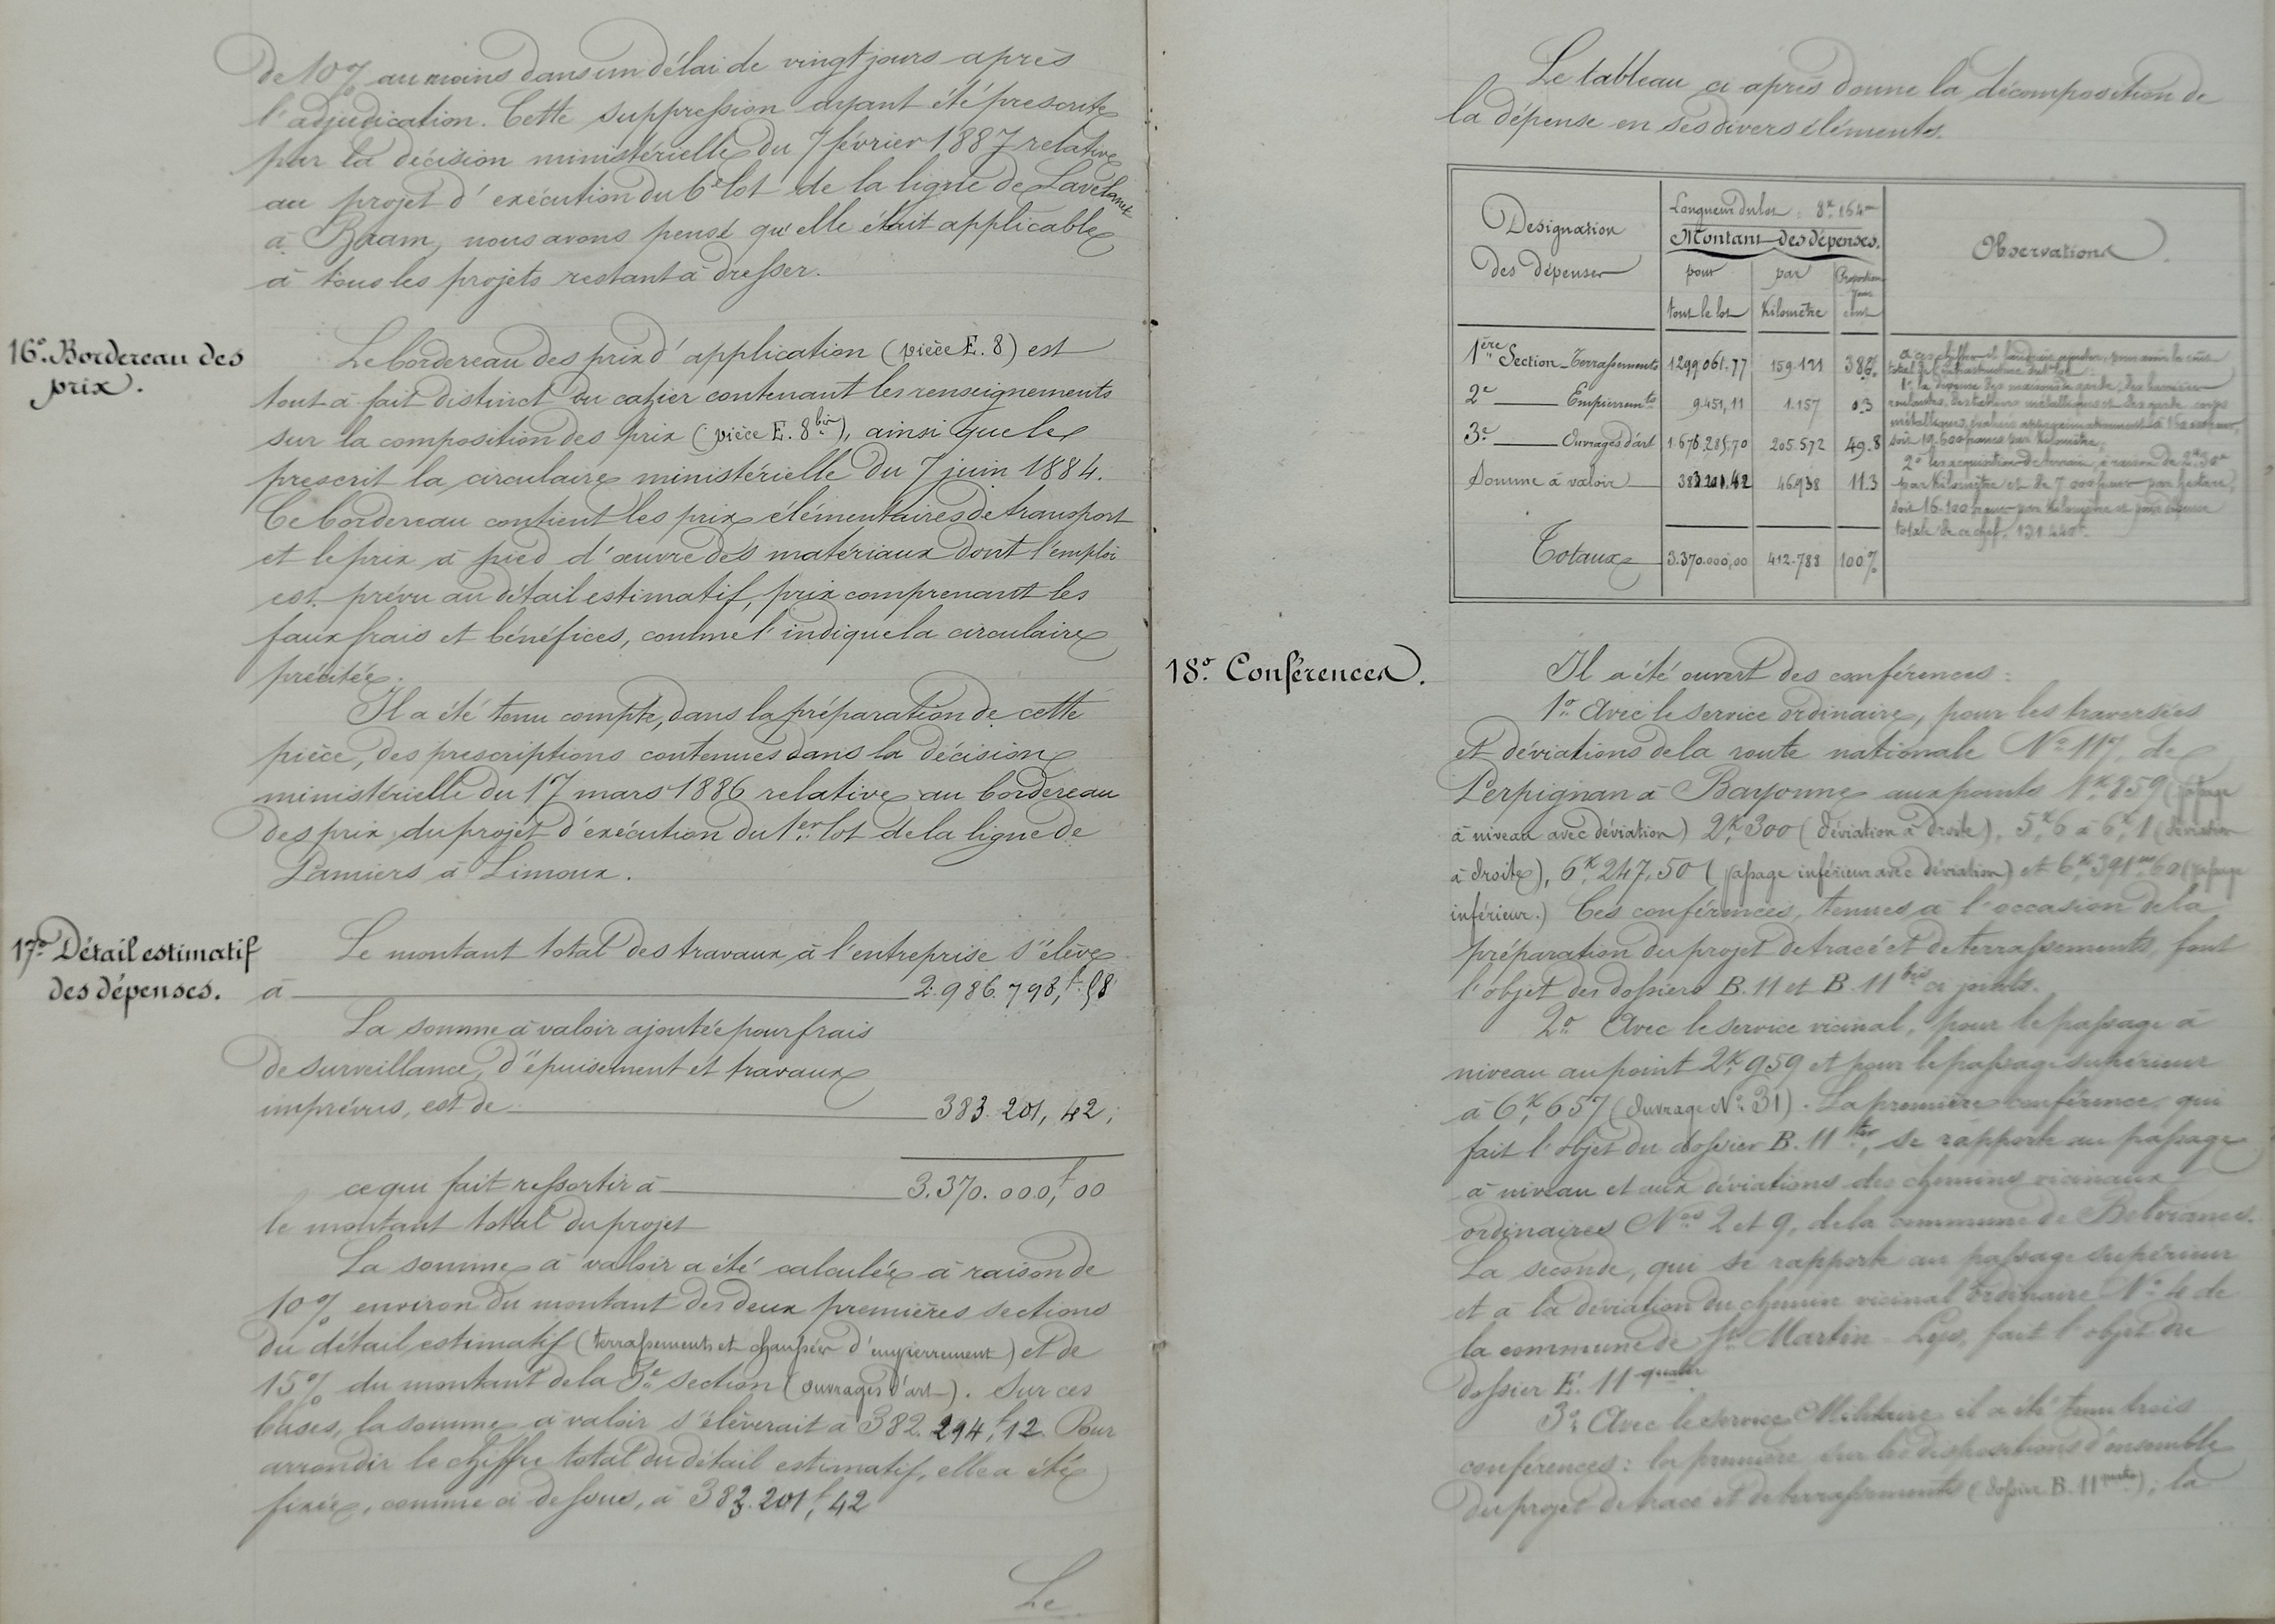 de 10% au moins dans un délai de vingt jours après
l'adjudication. Cette suppression ayant été prescrite
par la décision ministérielle du 7 février 1887 relative
au projet d'exécution du 6e lot de la ligne de Lavelanet
à Bram, nous avons pensé qu'elle était applicable
à tous les projets restant à dresser.
16° Bordereau des
prix.
Le bordereau des prix d'application (pièce E. 8) est
tout à fait distinct du cahier contenant les renseignements
sur la composition des prix (pièce E. 8 bis), ainsi que le
prescrit la circulaire ministérielle du 7 juin 1884.
Ce bordereau contient les prix élémentaires de transport
et le prix à pied d'œuvre des matériaux dont l'emploi
est prévu au détail estimatif, prix comprenant les
faux frais et bénéfices, comme l'indique la circulaire
précitée.
Il a été tenu compte, dans la préparation de cette
pièce, des prescriptions contenues dans la décision
ministérielle du 17 mars 1886 relative au bordereau
des prix du projet d'exécution du 1er lot de la ligne de
Pamiers à Limoux.
17° Détail estimatif
des dépenses.
Le montant total des travaux à l'entreprise s'élève
à 2.986.798,f58
La somme à valoir ajoutée pour frais
de surveillance, d'épuisement et travaux
imprévus, est de 383.201,42;
ce qui fait ressortir à 3.370.000,f00
le montant total du projet
La somme à valoir a été calculée à raison de
10% environ du montant des deux premières sections
du détail estimatif (terrassements et chaussées d'empierrement) et de
15% du montant de la 3e section (ouvrages d'art). Sur ces
bases, la somme à valoir s'élèverait à 382.294,f12. Pour
arrondir le chiffre total du détail estimatif, elle a été
fixée, comme ci dessus, à 383.201,f42
Le
Le tableau ci après donne la décomposition de
la dépense en ses divers éléments.
Designation
des dépenses
Longueur du lot : 8k.164m
Montant des dépenses.
pour
tout le lot
par
Kilomètre
Proportion
pour
cent
Observations.
1ère Section _ Terrassements 1299061.77 159.121 38.6
2e ___ Empierremts 9.451,11 1.157 0.3
3e ___ Ouvrages d'art 1.678.285,70 205.572 49.8
Somme à valoir 383.201.42 46.938 11.3
Totaux 3.370.000,00 412.788 100%
A ces chiffres il faudrait ajouter, pour avoir le coût
total de l'infrastructure du lot :
1° la dépense des maisons de garde, des barrières
roulantes, des tabliers métalliques et des garde corps
métalliques, évaluée approximativement à
soit 19.600 francs par kilomètre;
2° les acquisitions de terrain, à raison de
par kilomètre et de 7.000 francs par hectare,
soit 16.100 francs par kilomètre et pour dépense
totale de ce chef, 131.440f.
18° Conférences.
Il a été ouvert des conférences :
1° Avec le service ordinaire, pour les traversées
et déviations de la route nationale N° 117, de
Perpignan à Bayonne aux points 1k,859 (passage
à niveau avec déviation) 2k,300 (déviation à droite), 5k,6 à 6k,1 (déviation
à droite), 6k,247,50 (passage inférieur avec déviation) et 6k,391m60 (passage
inférieur.) Ces conférences, tenues à l'occasion de la
préparation du projet de tracé et de terrassements, font
l'objet des dossiers B. 11 et B. 11 bis ci joints.
2° Avec le service vicinal, pour le passage à
niveau au point 2k,959 et pour le passage supérieur
à 6k,657 (Ouvrage N° 31). La première conférence, qui
fait l'objet du dossier B. 11 ter, se rapporte au passage
à niveau et aux déviations des chemins vicinaux
ordinaires Nos 2 et 9, de la commune de Belvianes.
La seconde, qui se rapporte au passage supérieur
et à la déviation du chemin vicinal ordinaire N° 4 de
la commune de St Martin-Lys, fait l'objet du
dossier E. 11 quater
3° Avec le service Militaire il a été tenu trois
conférences : la première sur les dispositions d'ensemble
du projet de tracé et de terrassements (dossier B. 11 quater); la